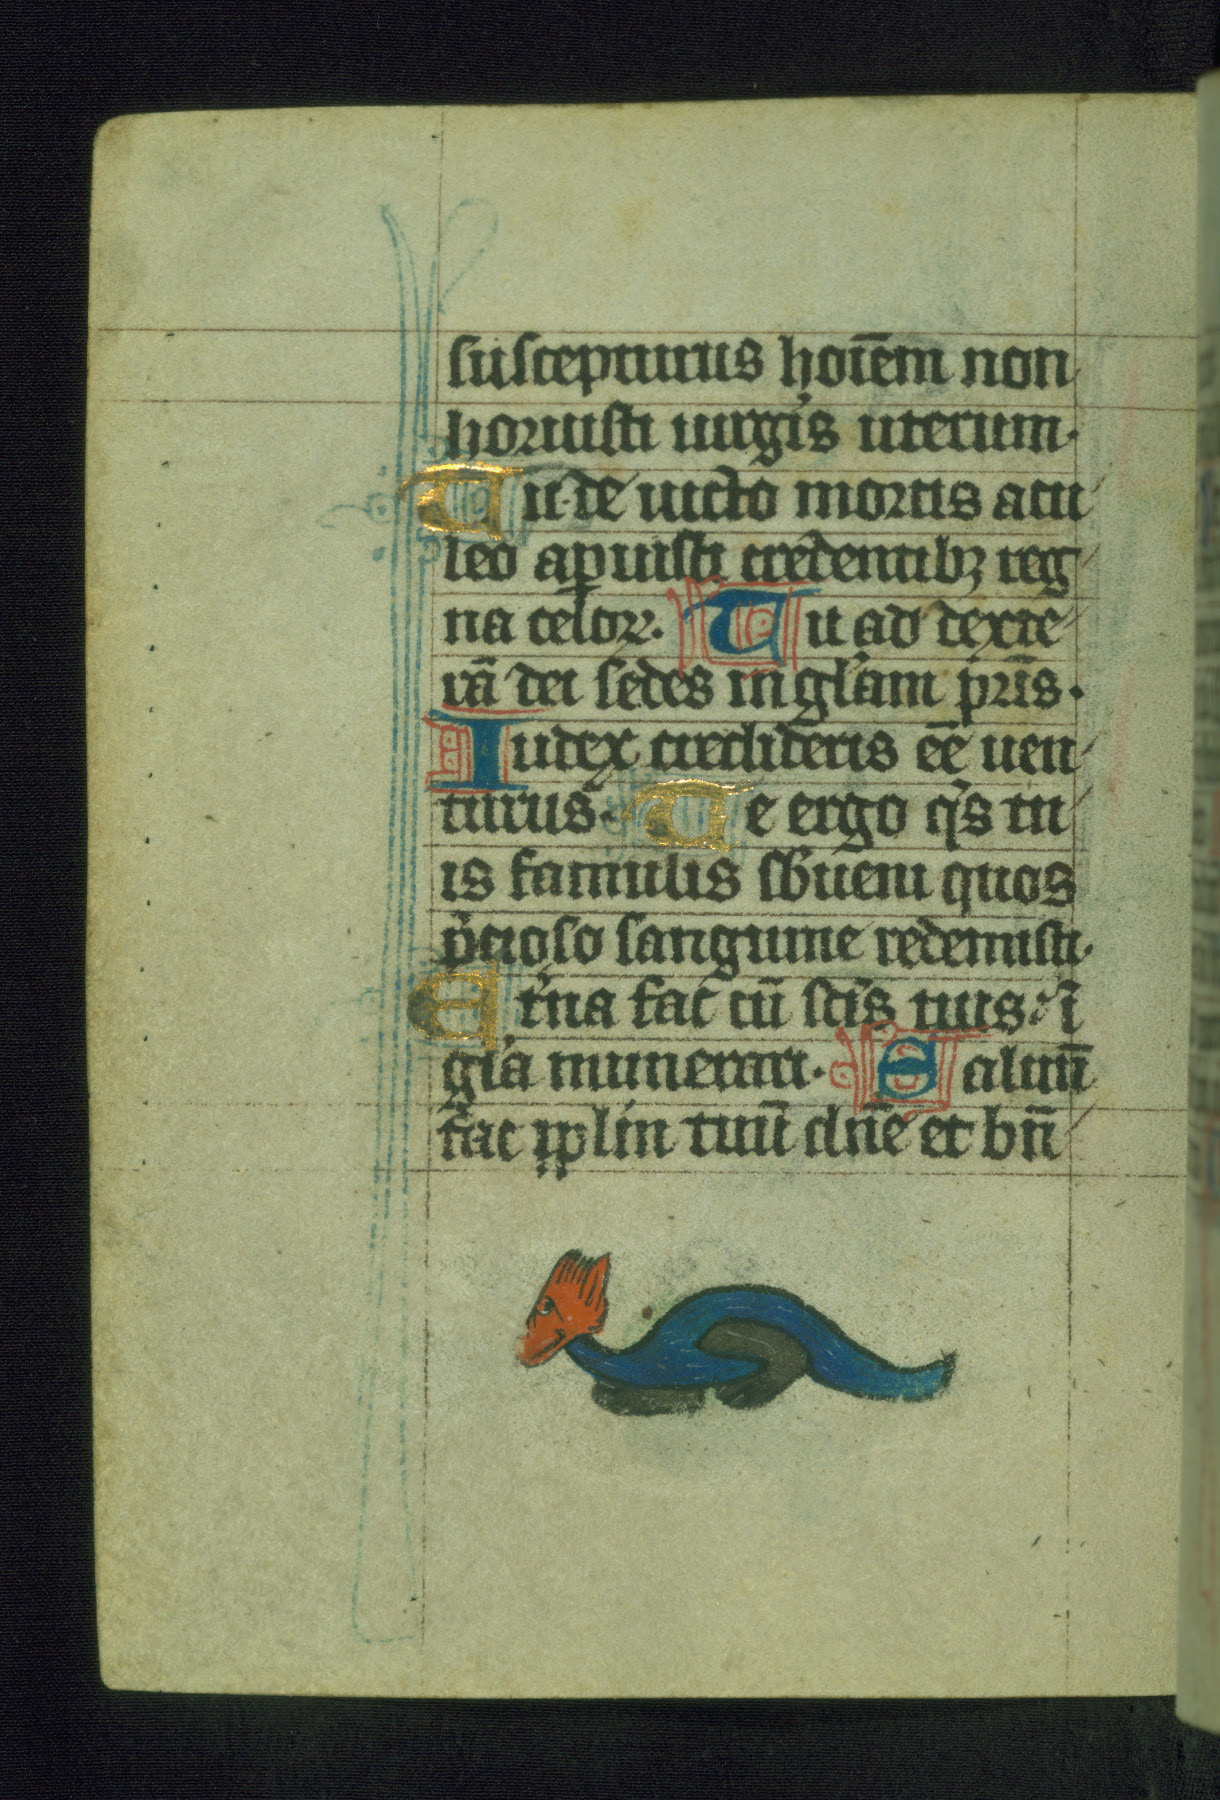 suscepturus hoiēm non
horuisti uirgis uterum·
Tu de uicto mortis acu
leo apuisti credentibꝫ reg
na celoꝝ· Tu ad dexte
rā dei sedes in gl'am pr̄is·
Iudex crederis eē uen
turus· Te ergo q̄s tu
is famulis sbueni quos
p̄cioso sanguine redemisti·
Et'na fac cū sc̄is tuis ī
gl'a munerari· Saluū
fac ip̄l'm tuū dn̄e et bn̄